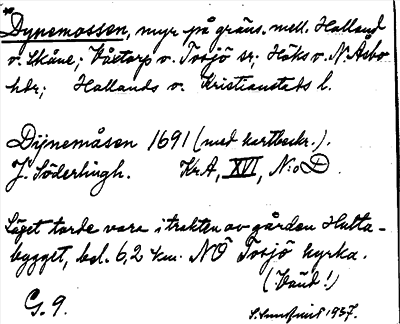 Dynemossen, myr på gräns. mell. Halland
o. Skåne; Våxtorp o. Tosjö sr; Höks o. N. Åsbo
hdr; Hallands o. Kristianstads l.
Dÿnemåsen 1691 (med kartbeskr.).
J. Söderlingh. KrA, XVI, N:o D.
Läget torde vara i trakten av gården Hulta-
bygget, bel. 6,2 km. NÖ Tosjö kyrka.
(Vänd!)
G. 9.
1937.